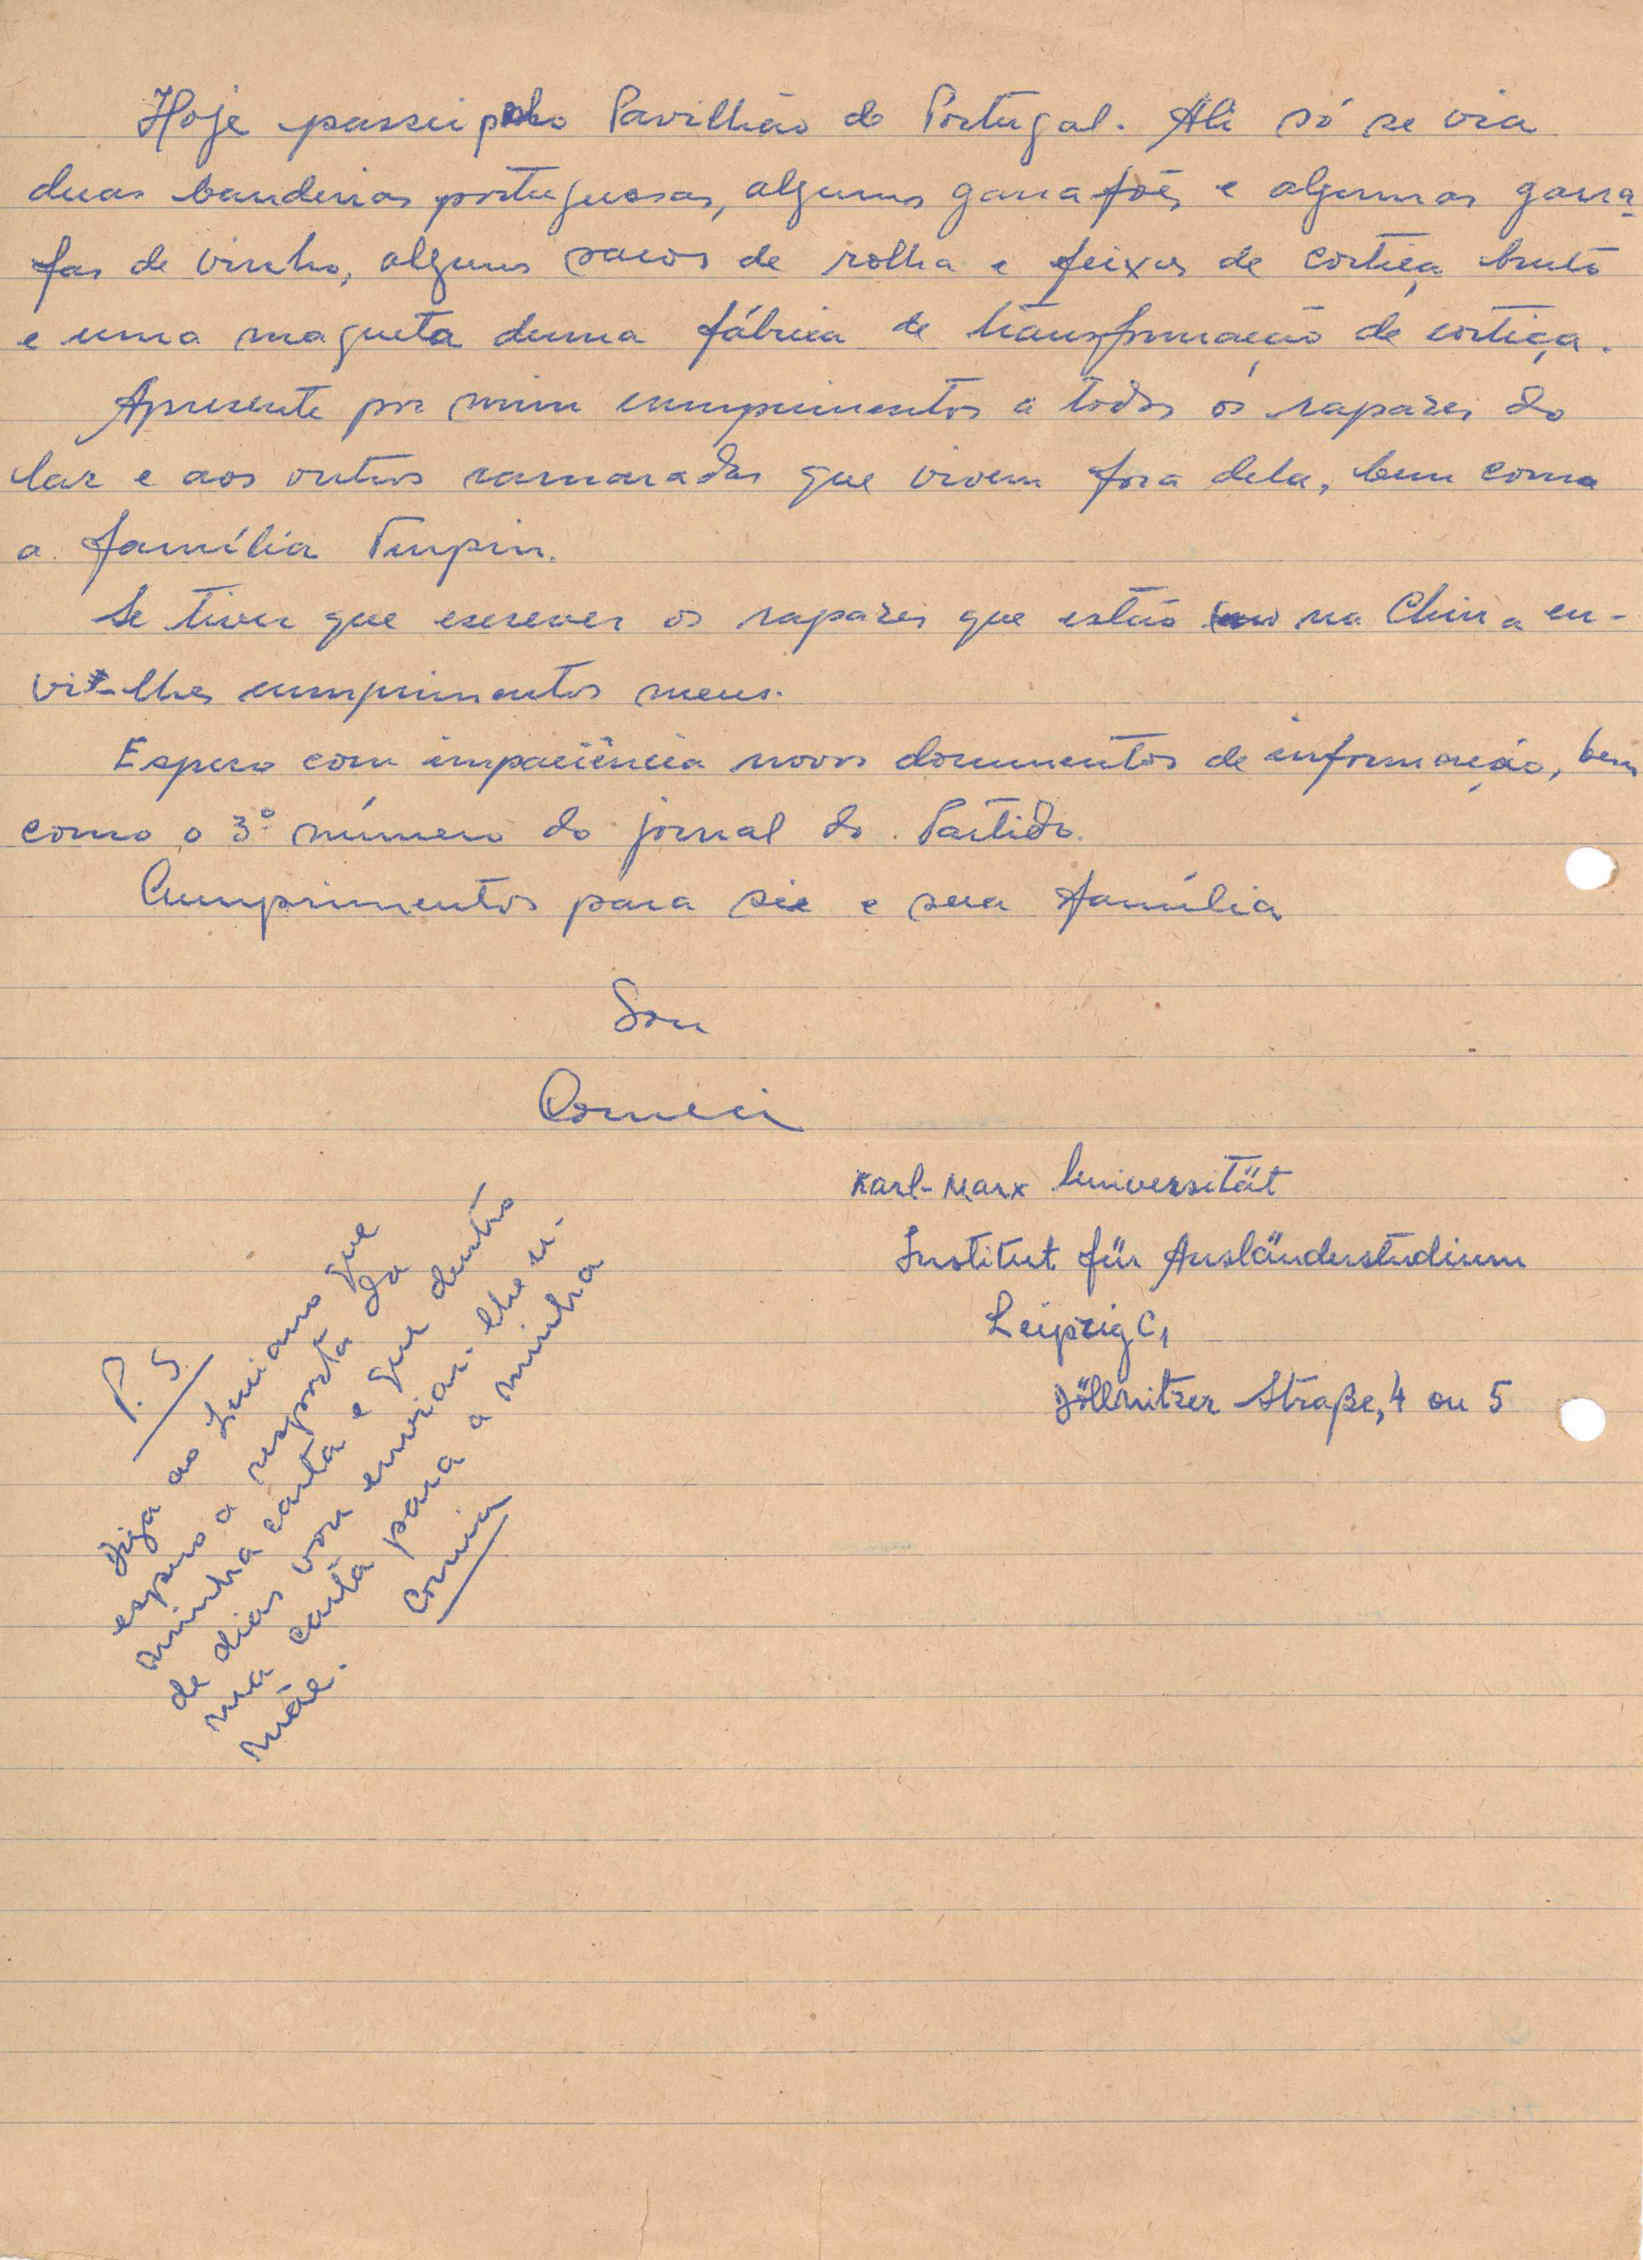 Hoje passei pelo Pavilhão de Portugal. Ali só se via
duas bandeiras portuguesas, alguns garrafões e algumas garra-
fas de vinho, alguns sacos de rolha e feixes de cortiça bruto
e uma maqueta duma fábrica de transformação de cortiça.
Apresente por mim cumprimentos a todos os rapazes do
lar e aos outros camaradas que vivem fora dele, bem como
a família Turpin.
Se tiver que escrever os rapazes que estão na China en-
vie-lhes cumprimentos meus.
Espero com impaciência novos documentos de informação, bem
como o 3º número do jornal do Partido.
Cumprimentos para si e sua família
Sou
Karl-Marx Universität
Institut für Ausländerstudium
Leipzig C1
Döllnitzer Straße, 4 ou 5
P.S.
Diga ao Luciano que
espero a resposta da
minha carta e que dentro
de dias vou enviar-lhe u-
ma carta para a minha
mãe.